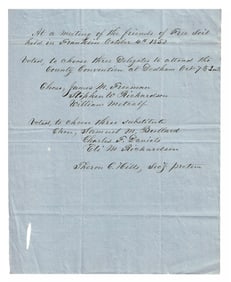 At a meeting of the friends of Free Soil
held in Franklin October 6th
Voted to choose three Delegates to attend the
County Convention at Dedham Oct 7th
Chose, James M. Freeman
Stephen W. Richardson
William Metcalf
Voted to choose three substitutes
Chose, Samuel M. Bullard
Charles F. Daniels
Eli M. Richardson
Theron C. Hills, Sec'y protem